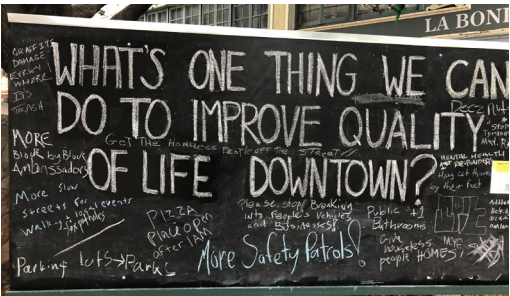 LA BONI
WHAT'S ONE THING WE CAN
DO TO IMPROVE QUALITY
OF LIFE DOWNTOWN?
GRAFFITI
DAMAGE
EVERY
WHERE.
ITS
TRASH
MORE
Block by Block
Ambassadors
GET THE HOMELESS PEOPLE OFF THE STREET!!
More slow
streets for local events
walking +
Parking lots → Parks
PIZZA
place open
after 1AM
More Safety Patrols!
Please, stop Breaking
into People's Vehicles
and Businesses!
Public +1
Bathrooms
Give
houseless
people HOMES!
MORE
MENTAL HEALTH
by their feet